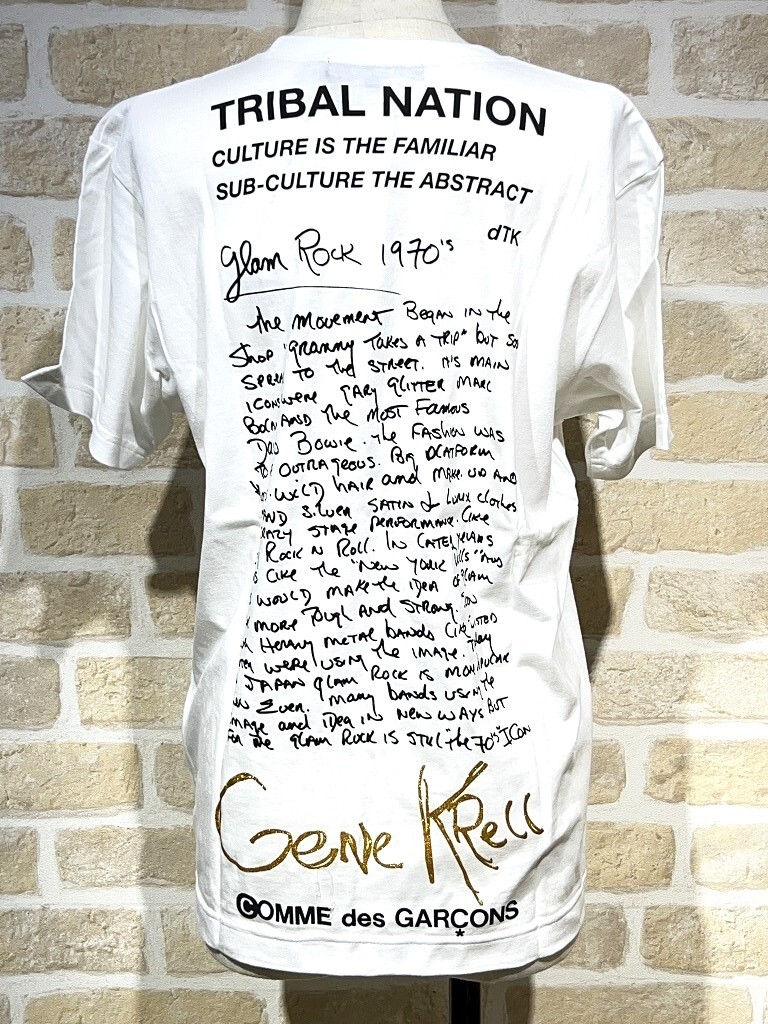 TRIBAL NATION
CULTURE IS THE FAMILIAR
SUB-CULTURE THE ABSTRACT
dTK
Glam Rock 1970's
The Movement Began IN the
Shop "Granny Takes A TRIP" but
TO The STREET. IT'S MAIN
ICONS WERE GARY GLITTER MARC
AND The MOST Famous
Bowie. The FASHION WAS
OUTRAGEOUS. Big PLATFORM
WILD HAIR and MAKE UP AND
AND SILVER SATIN & LUREX Clothes
STAGE PERFORMANCE. LIKE
ROCK N ROLL. IN LATER YEARS
LIKE The "NEW YORK
WOULD MAKE The IDEA OF GLAM
MORE TOUGH AND STRONG.
HEAVY METAL bands
WERE USING The IMAGE.
JAPAN GLAM ROCK IS
EVER. MANY bands USING The
and IDEA IN NEW WAYS BUT
FOR ME GLAM ROCK IS STILL The 70's ICON
Gene Krell
COMME des GARÇONS